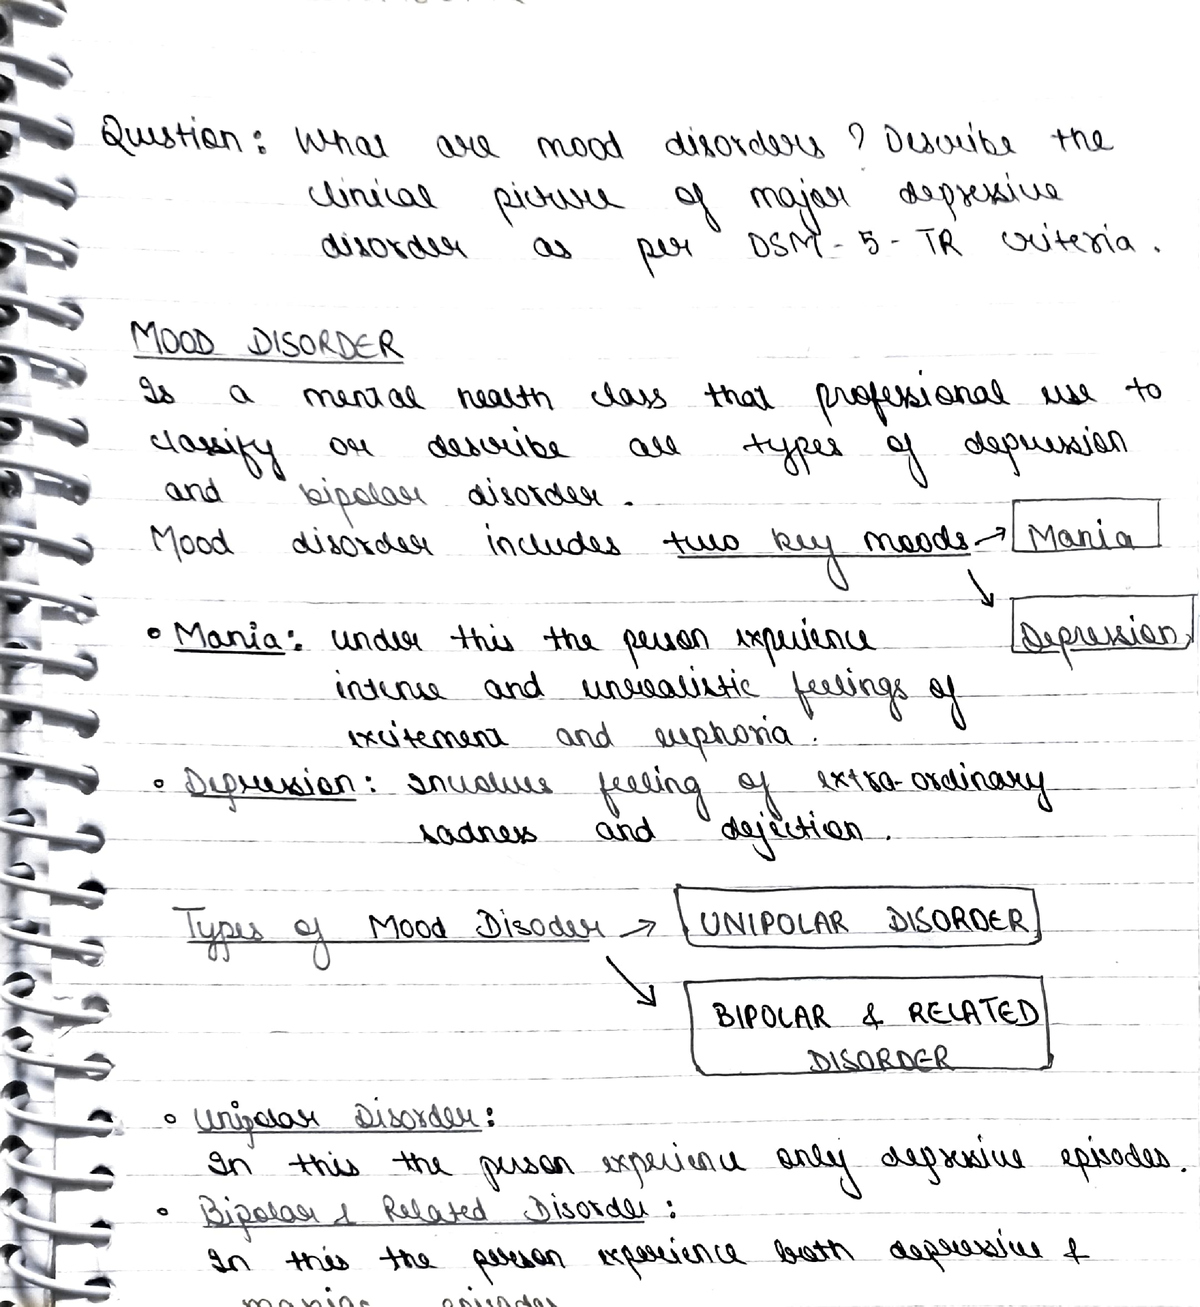 Question: What are mood disorders? Describe the
clinical picture of major depressive
disorder as per DSM-5-TR criteria.
MOOD DISORDER
Is a mental health class that professional use to
classify or describe all types of depression
and bipolar disorder.
Mood disorder includes two key moods → Mania
Depression
• Mania: under this the person experience
intense and unrealistic feelings of
excitement and euphoria.
• Depression: Involves feeling of extra-ordinary
sadness and dejection.
Types of Mood Disoder → UNIPOLAR DISORDER
BIPOLAR & RELATED
DISORDER
• Unipolar Disorder:
In this the person experience only depressive episodes.
• Bipolar & Related Disorder:
In this the person experience both depressive &
episodes